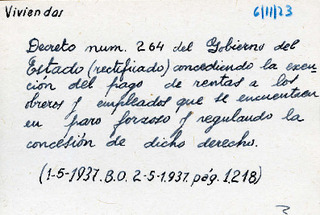 Viviendas
6/11/23
Decreto num. 264 del Gobierno del
Estado (rectificado) concediendo la exen-
ción del pago de rentas a los
obreros y empleados que se encuentren
en paro forzoso y regulando la
concesión de dicho derecho.
(1-5-1937. B.O. 2-5-1937. pág. 1.218)